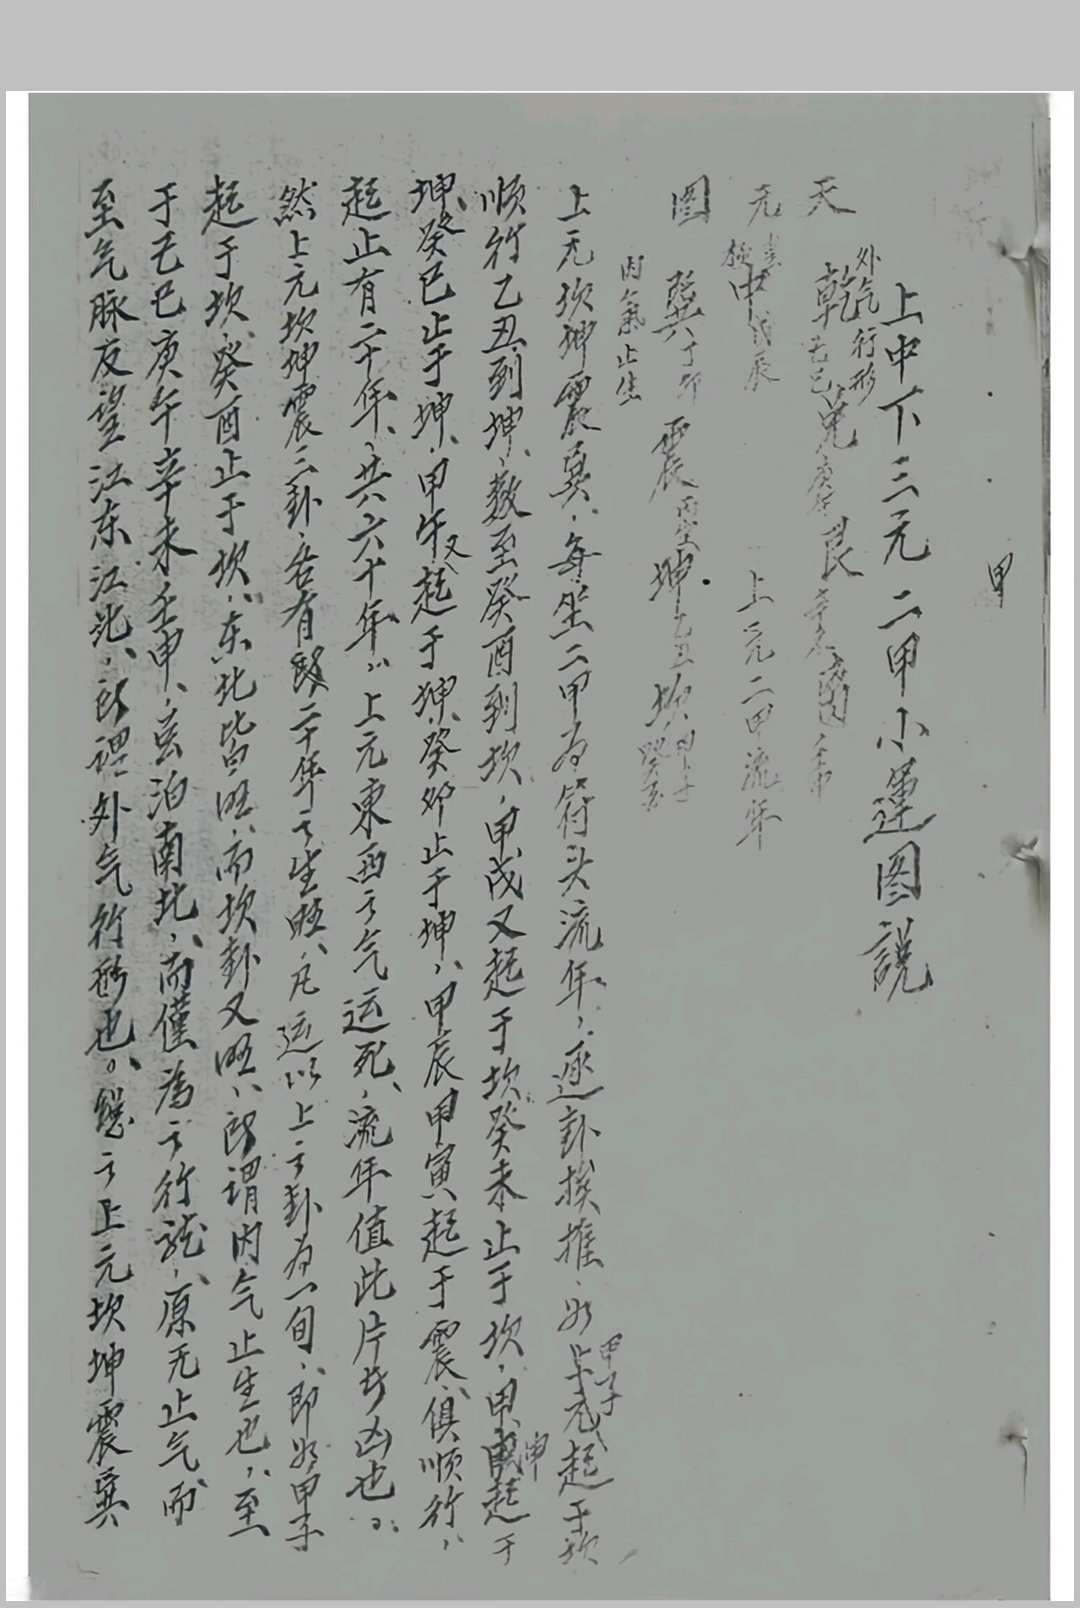 甲
上中下三元二甲小運图說
天
外气行形
乾 己巳 兑 庚午 艮 辛未 离 壬申
元
中 戊辰
上元二甲流年
图
巽 丁卯 震 丙寅 坤 乙丑 坎 甲子 癸酉
内氣止生
上元坎坤震巽、每坐二甲为符头流年、逐卦挨推、如上元甲子起于坎
顺行乙丑到坤、数至癸酉到坎、甲戌又起于坎癸未止于坎、甲申起于
坤、癸巳止于坤、甲午又起于坤、癸卯止于坤、甲辰甲寅起于震、俱顺行、
起止有二十年、共六十年、上元東西之气运死、流年值此片步凶也。
然上元坎坤震三卦、各有二十年之生旺、凡运以上之卦为一旬、即如甲子
起于坎、癸酉止于坎、东北皆旺、而坎卦又旺、所謂内气止生也、至
于己巳庚午辛未壬申、气泊南北、而僅為之行龍、原无止气而
至气脉反望江东江北、所谓外气行形也。總之上元坎坤震巽